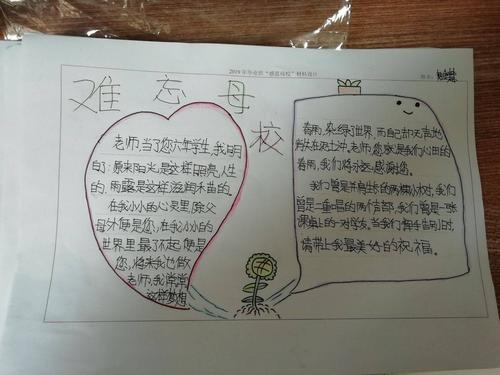 2019年毕业班“感恩母校”材料设计
难忘母校
老师,当了您六年学生,我明
白了:原来阳光是这样明亮,人生
的,雨露是这样滋润禾苗的。
在我小小的心灵里,除父
母外便是您,在我小小的
世界里最了不起便是
您,将来我也做
老师,我常常
这样梦想
春雨,染绿了世界,而自己却无声地
消失在泥土中。老师,您就是我们心田的
春雨,我们将永远感谢您。
我们曾是并肩生长的两棵小树,我们
曾是一重唱的两个声部,我们曾是一张
课桌上的一对学友。当我们握手告别时,
请带上我最美好的祝福。